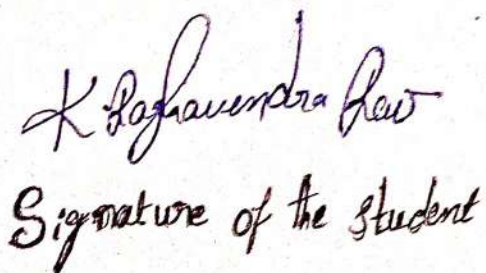 K Raghavendra Rao
Signature of the student